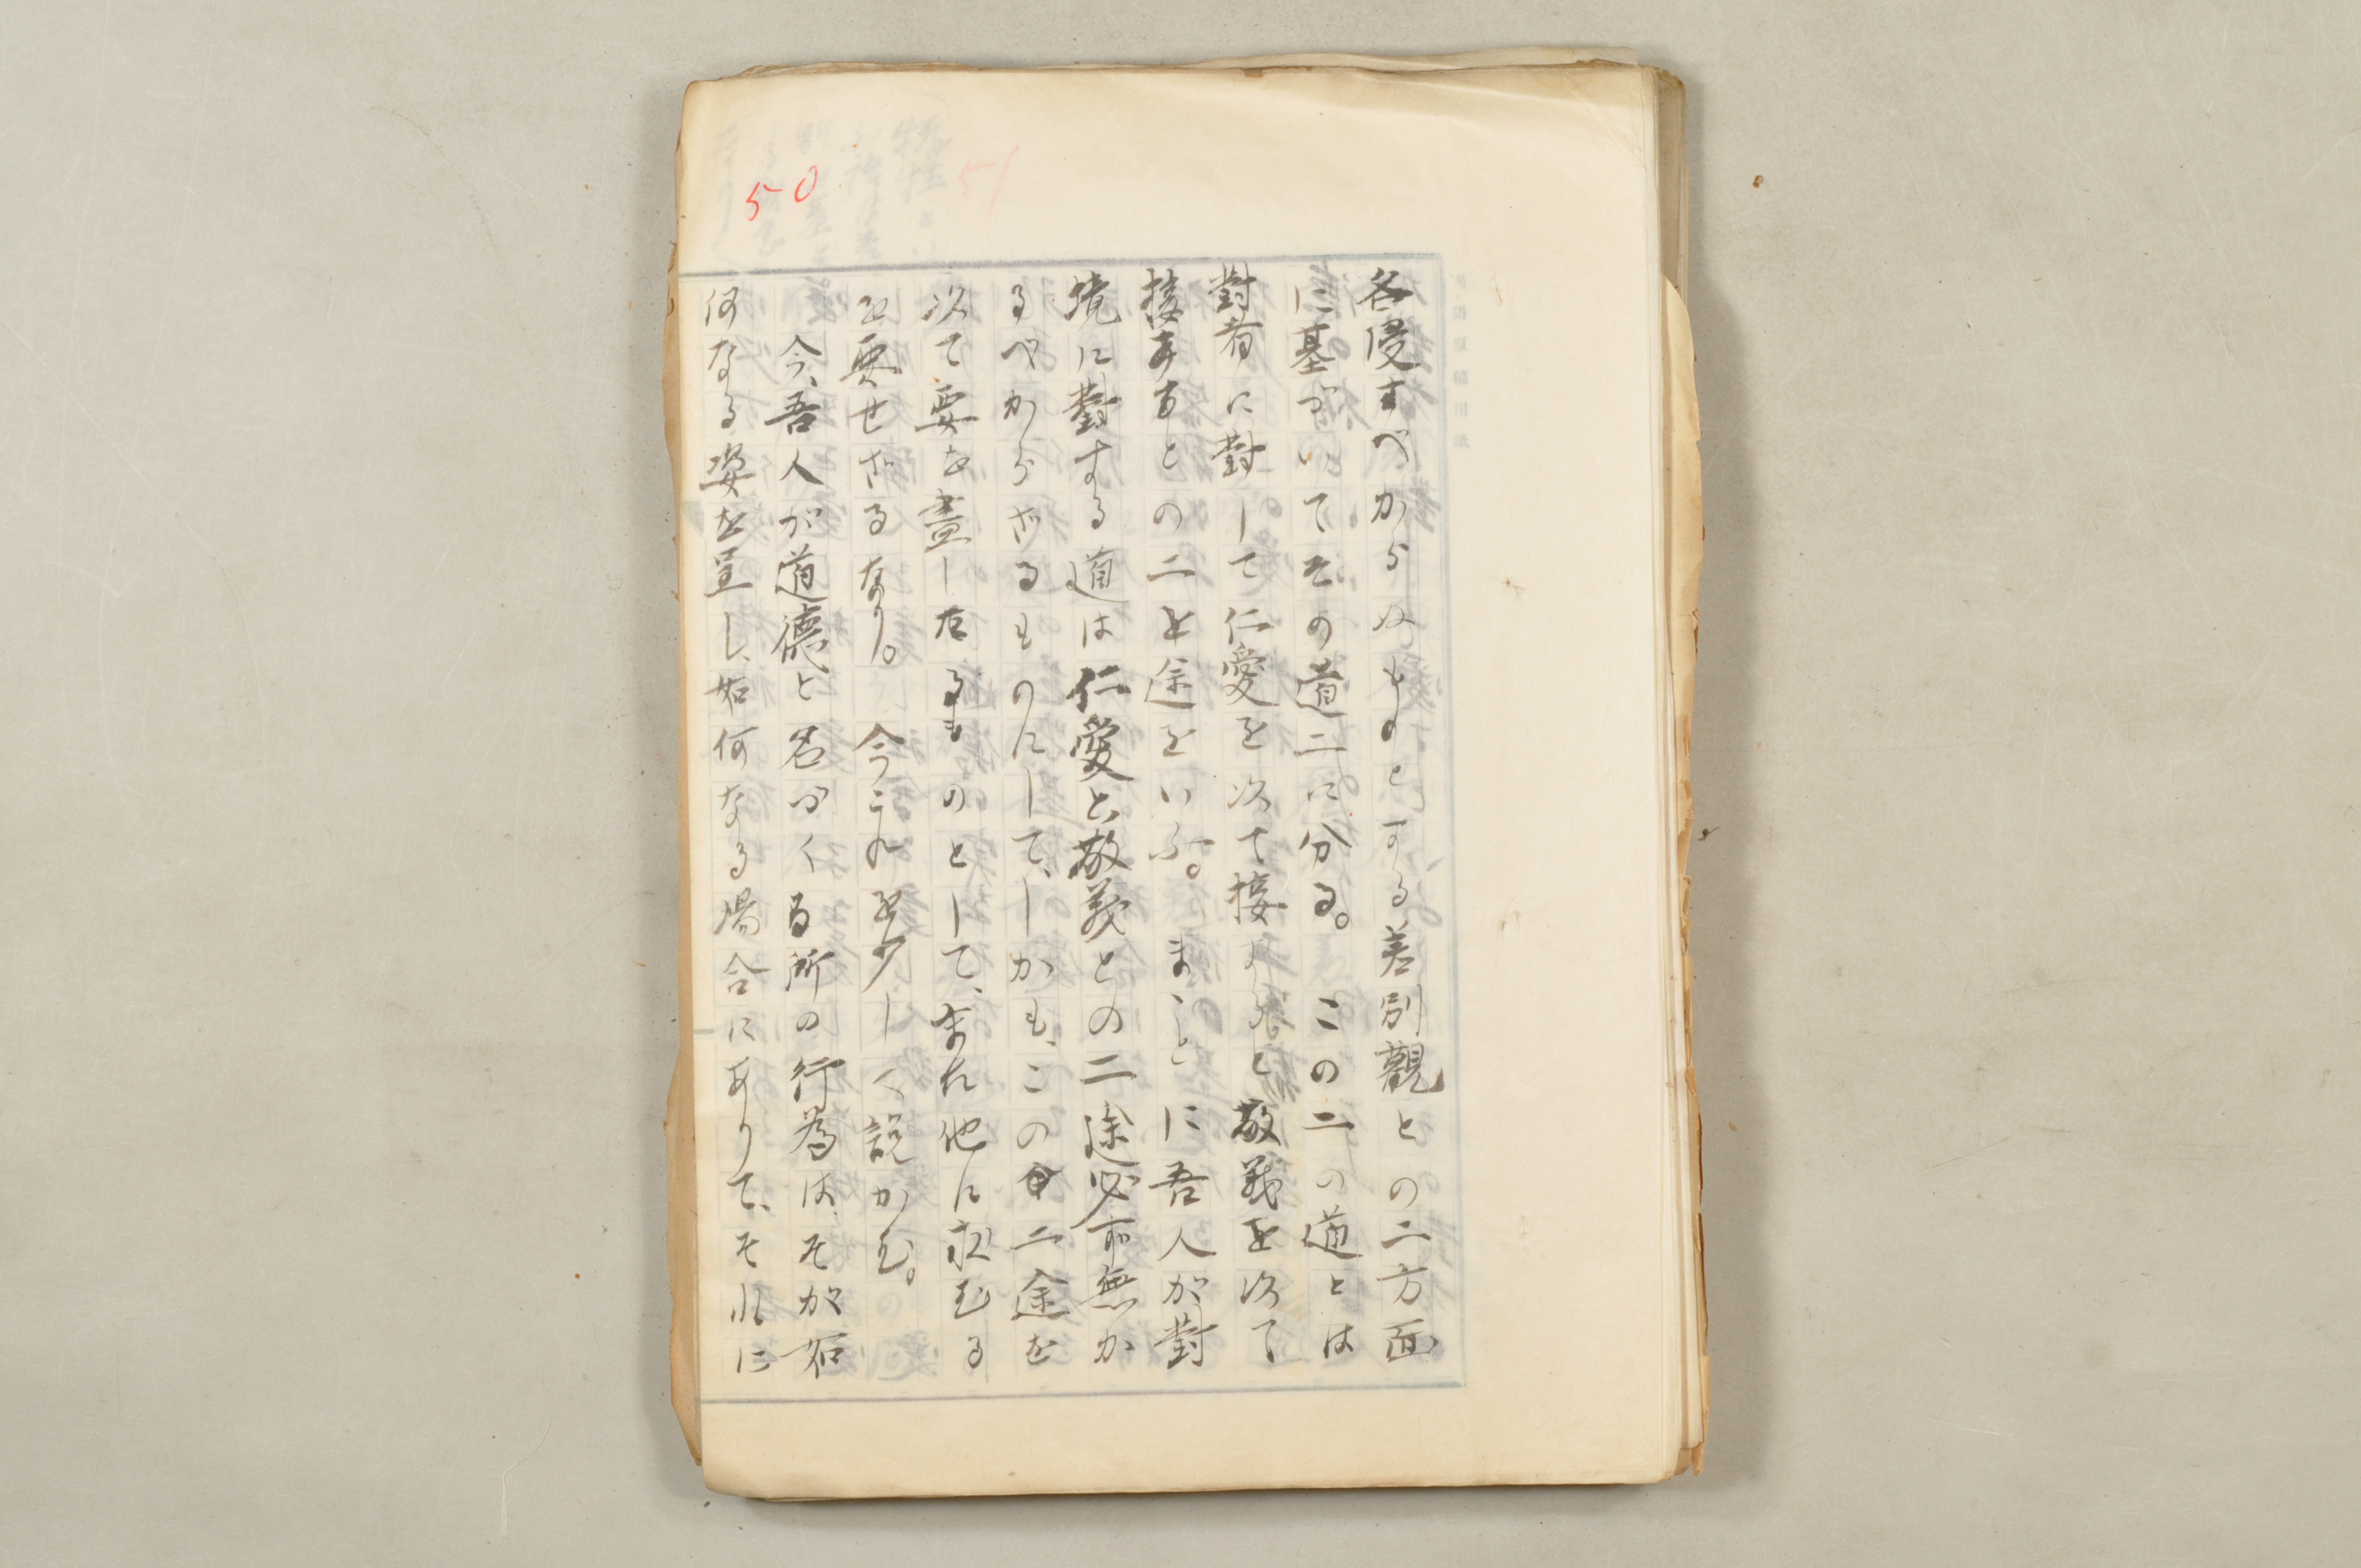 50
各侵すべからぬものとする差別觀との二方面
に基づいてその道二に分る。この二の道とは
對者に對して仁愛を以て接すると敬義を以て
接すとの二途をいふ。まことに吾人が對
境に對する道は仁愛と敬義との二途必ず無か
るべからざるものにして、しかも、この二途を
以て要を盡したるものとして、また他に求むる
を要せざるなり。今これを少しく説かむ。
今、吾人が道德と名づくる所の行為は、それが如
何なる姿を呈し、如何なる場合にありて、それに